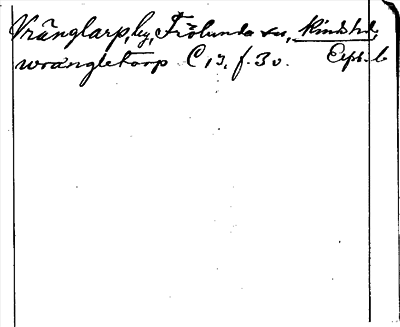 Vränglarp, by, Frölunda sn, Kinds hd,
wrangletorp C 13, f. 30. Eeps. b